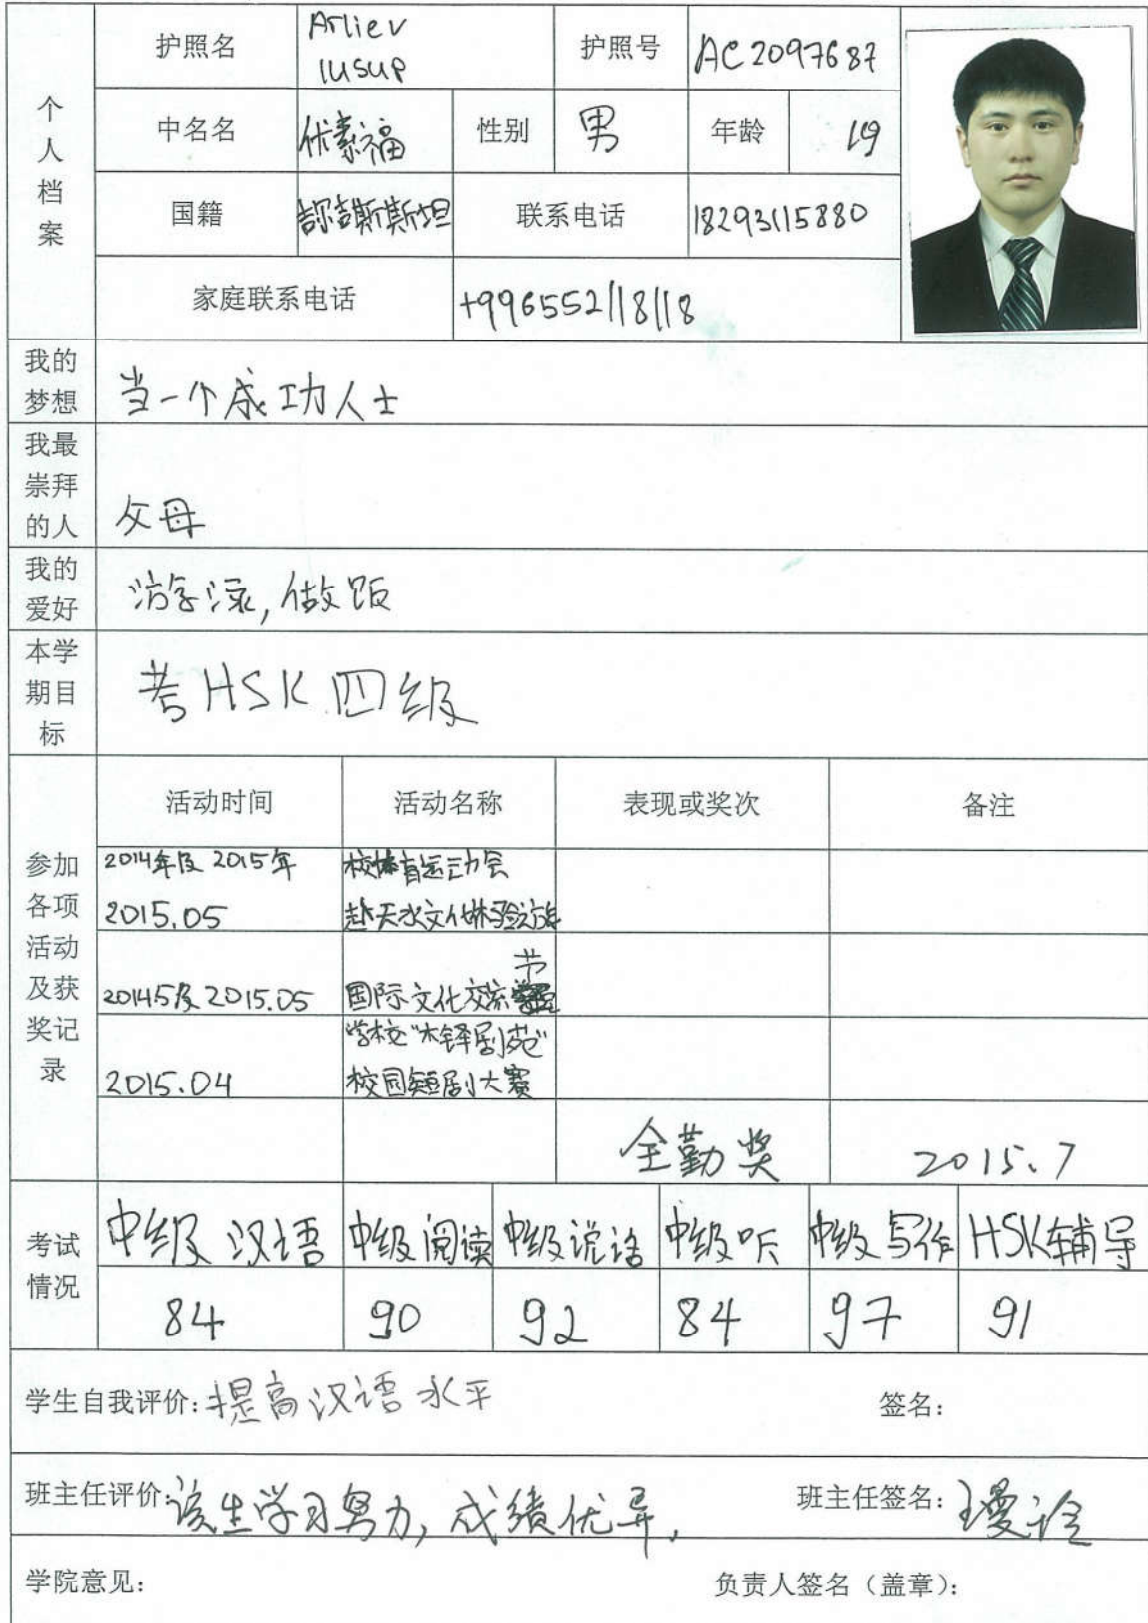 个人档案
护照名 Arliev Iusup 护照号 AC2097687
中名名 优素福 性别 男 年龄 19
国籍 吉尔吉斯斯坦 联系电话 18293115880
家庭联系电话 +996552118118
我的梦想 当一个成功人士
我最崇拜的人 父母
我的爱好 游泳,做饭
本学期目标 考HSK四级
参加各项活动及获奖记录
活动时间 活动名称 表现或奖次 备注
2014年及2015年 校体育运动会
2015.05 赴天水文化体验之旅
20145及2015.05 国际文化交流节
学校"木铎剧苑"
2015.04 校园短剧大赛
全勤奖 2015.7
考试情况
中级汉语 中级阅读 中级说话 中级听 中级写作 HSK辅导
84 90 92 84 97 91
学生自我评价:提高汉语水平 签名:
班主任评价:该生学习努力,成绩优异. 班主任签名:
学院意见: 负责人签名(盖章):